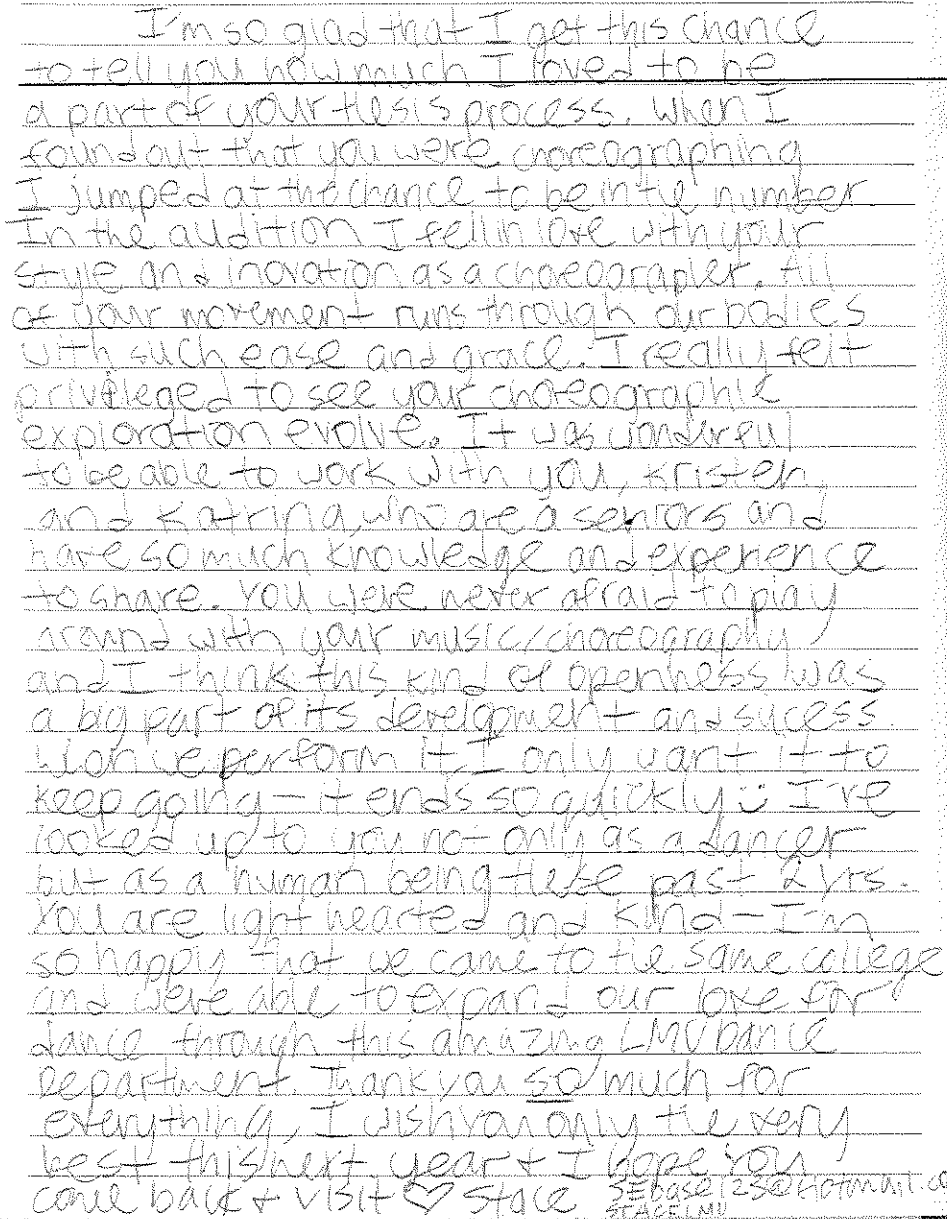 I'm so glad that I get this chance
to tell you how much I loved to be
a part of your thesis process. When I
found out that you were choreographing
I jumped at the chance to be in the number
In the audition I fell in love with your
style and inovation as a choreographer. All
of your movement runs through our bodies
with such ease and grace. I really felt
privileged to see your choreographic
exploration evolve. It was wonderful
to be able to work with you, Kristen,
and Katrina, who are a seniors and
have so much knowledge and experience
to share. You were never afraid to play
around with your music/choreography
and I think this kind of openness was
a big part of its development and sucess.
When we perform it, I only want it to
keep going - it ends so quickly :) I've
looked up to you not only as a dancer
but as a human being these past 2 yrs.
You are light hearted and kind - I'm
so happy that we came to the same college
and were able to expand our love for
dance through this amazing LMU Dance
Department. Thank you so much for
everything, I wish you only the very
best this/next year + I hope you
come back + visit ♡ Stace